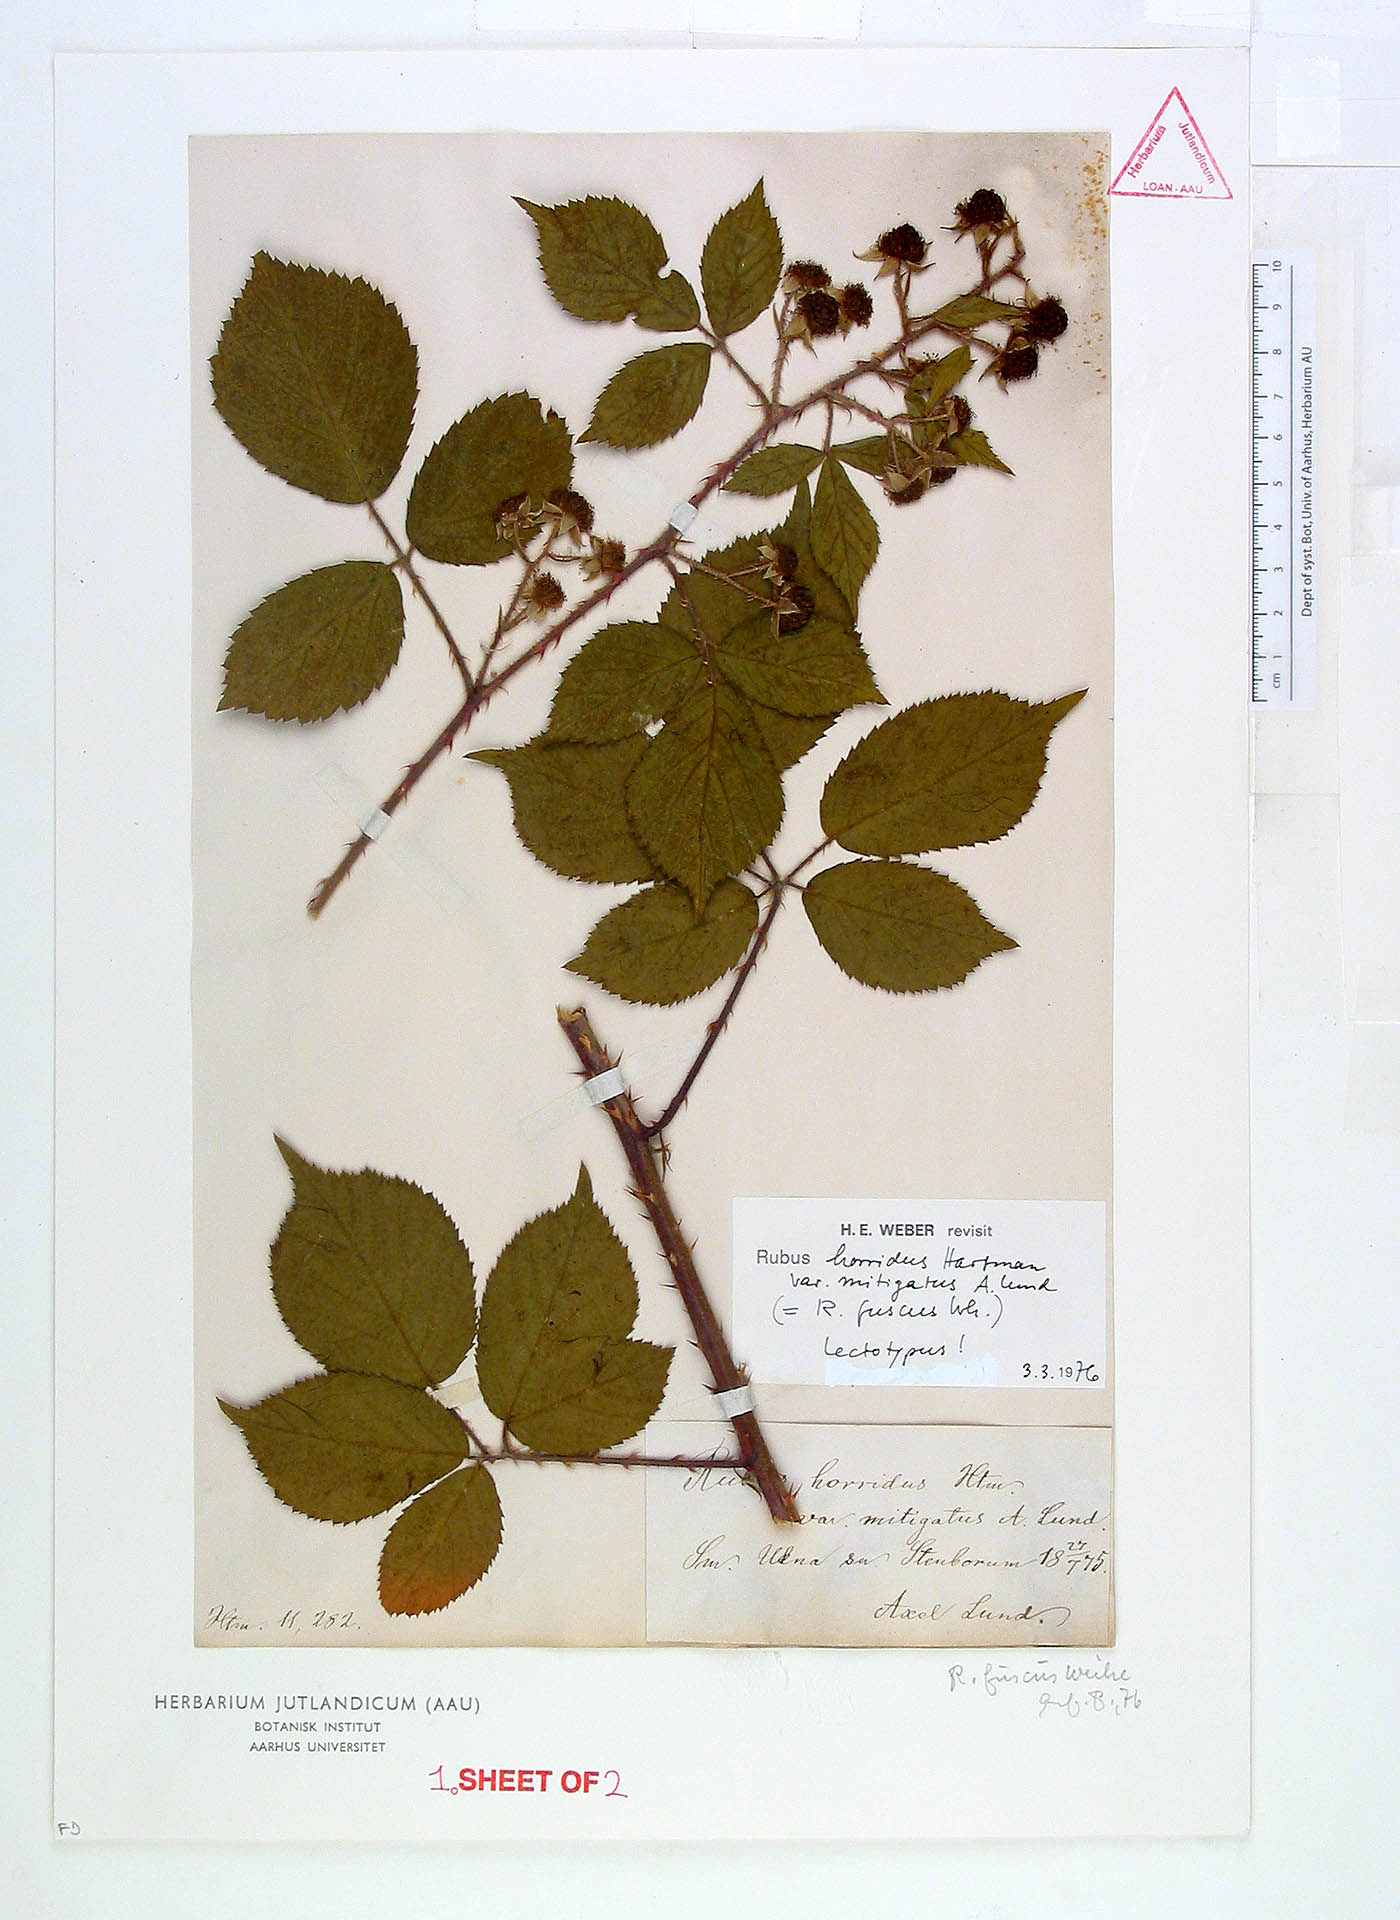 Herbarium Jutlandicum
LOAN-AAU
10 9 8 7 6 5 4 3 2 1 cm
Dept of syst. Bot, Univ. of Aarhus, Herbarium AU
H. E. WEBER revisit
Rubus horridus Hartman
var. mitigatus A. Lund
(= R. fuscus Wh.)
Lectotypus!
3.3.1976
horridus Htm.
var. mitigatus A. Lund.
Sm. Stenborum 18 27/7 75.
Axel Lund.
Htm. 11, 282.
R. fuscus Weihe
76
HERBARIUM JUTLANDICUM (AAU)
BOTANISK INSTITUT
AARHUS UNIVERSITET
1. SHEET OF 2
FD